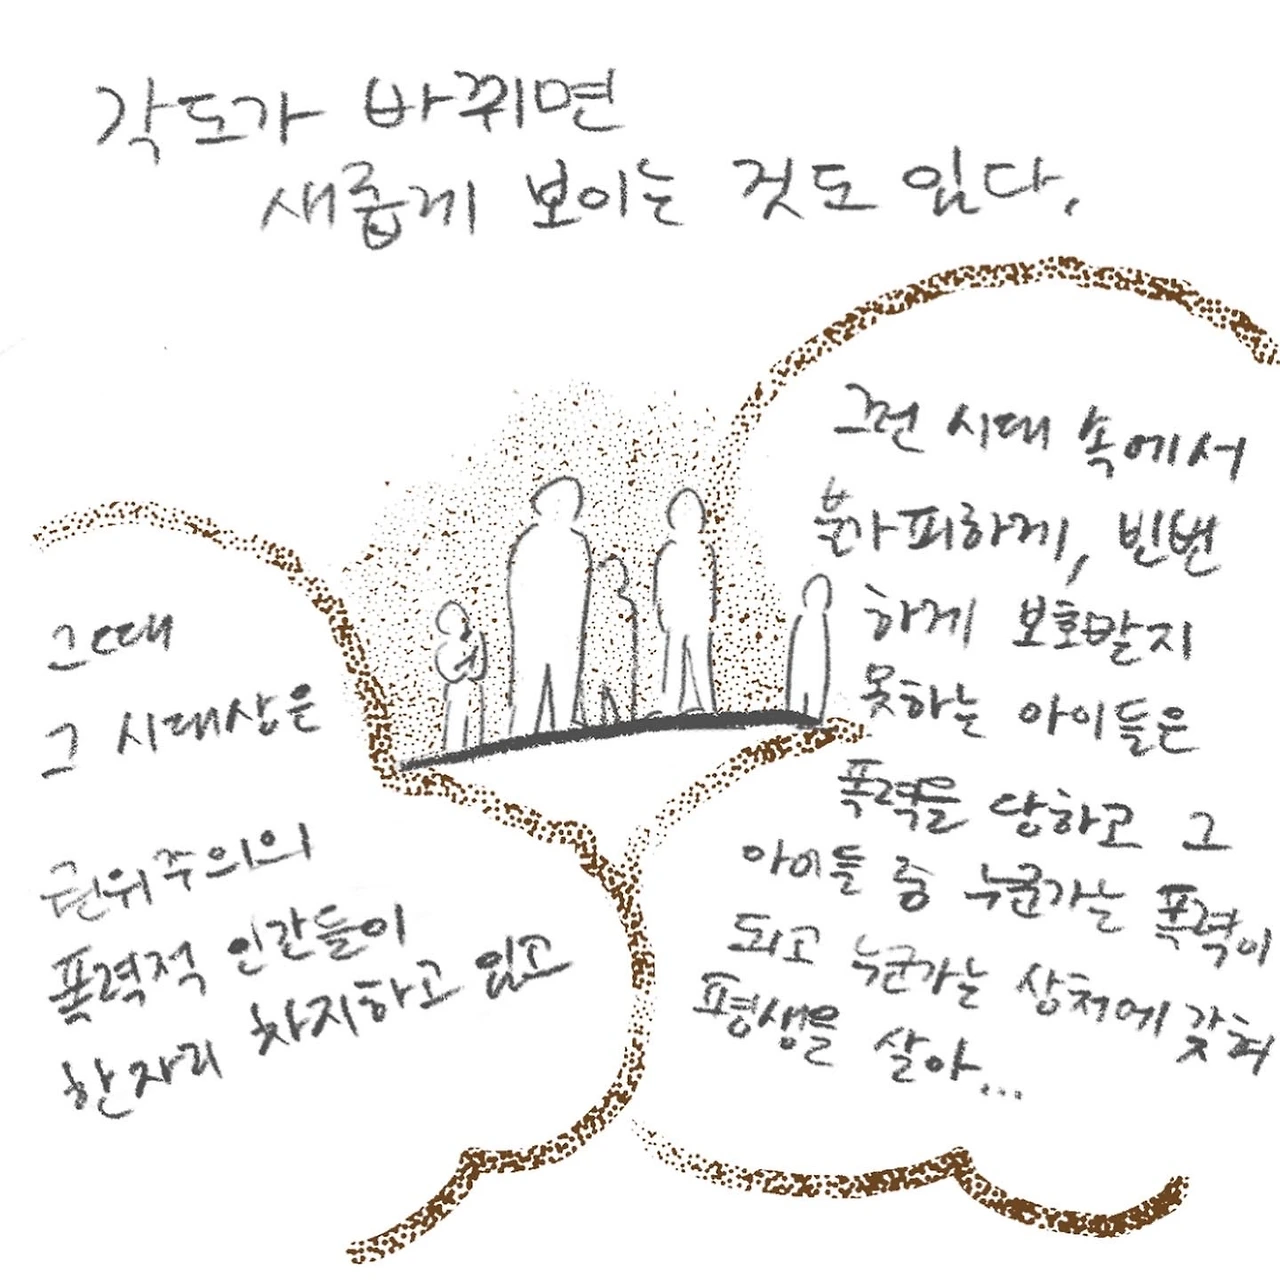 각도가 바뀌면
새롭게 보이는 것도 있다.
그때
그 시대상은
권위주의의
폭력적 인간들이
한자리 차지하고 있고
그런 시대 속에서
불가피하게, 빈번
하게 보호받지
못하는 아이들은
폭력을 당하고 그
아이들 중 누군가는 폭력이
되고 누군가는 상처에 갖혀
평생을 살아...